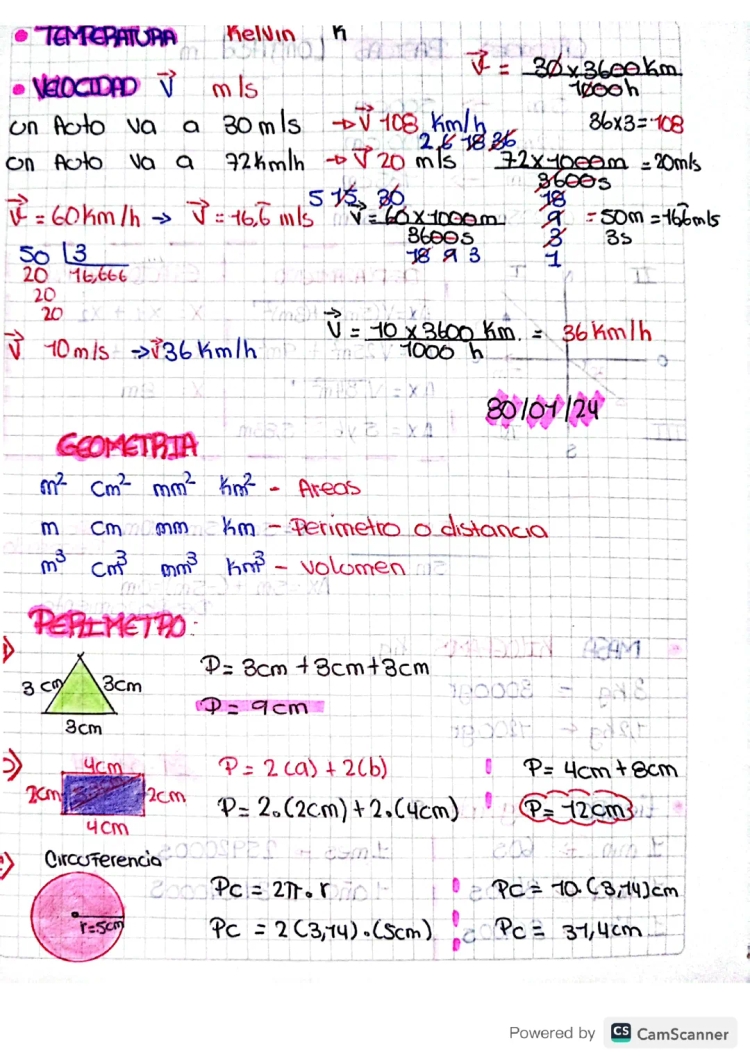 • TEMPERATURA Kelvin K
• VELOCIDAD V⃗ m/s
V⃗ = 30x3600 Km / 1000h
un Auto va a 30 m/s → V⃗ 108 Km/h 36x3=108
2 6 18 36
un Auto va a 72Km/h → V⃗ 20 m/s 72x1000m / 3600s = 20m/s
5 15 30 18
V⃗ = 60 km/h → V⃗ = 16,6̄ m/s V⃗ = 60x1000m / 3600s 9 = 50m / 3s = 166̄ m/s
18 9 3 3
1
50 | 3
20 16,666
20
20
V⃗ 10 m/s → V⃗ 36 Km/h V⃗ = 10 x 3600 Km. / 1000 h = 36 Km/h
30/01/24
GEOMETRIA
m² cm² mm² Km² - Areas
m cm mm Km - Perimetro o distancia
m³ cm³ mm³ Km³ - Volumen
PERIMETRO:
3 cm 3cm P= 3cm + 3cm + 3cm
3cm P= 9 cm
4cm P= 2(a) + 2(b) P= 4cm + 8cm
2cm 2cm P= 2.(2cm) + 2.(4cm) P= 12 cm
4cm
Circuferencia
r=5cm Pc = 2π.r Pc = 10.(3,14)cm
Pc = 2(3,14).(5cm) Pc = 31,4cm
Powered by CS CamScanner